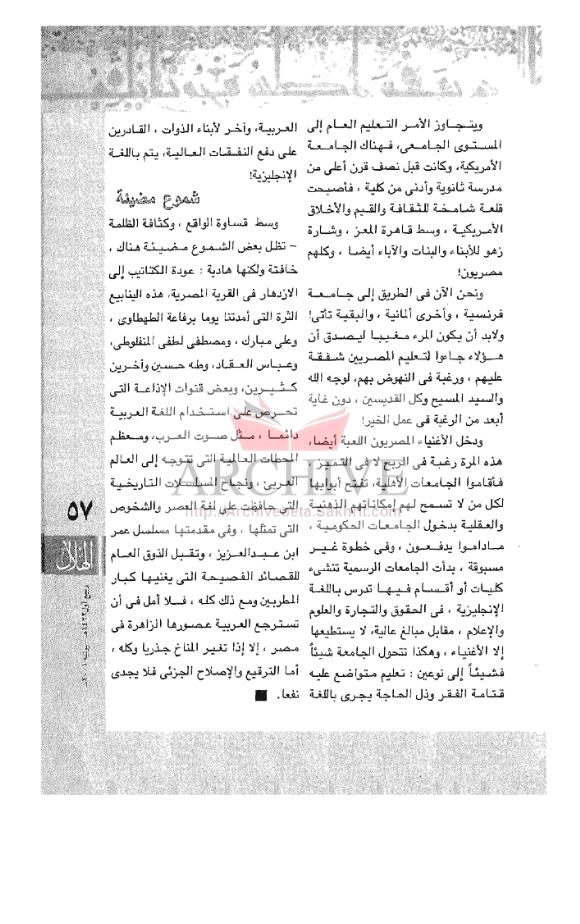 ويتجاوز الأمر التعليم العام إلى
المستوى الجامعى، فهناك الجامعة
الأمريكية، وكانت قبل نصف قرن أعلى من
مدرسة ثانوية وأدنى من كلية ، فأصبحت
قلعة شامخة للثقافة والقيم والأخلاق
الأمريكية ، وسط قاهرة المعز ، وشارة
زهو للأبناء والبنات والآباء أيضا ، وكلهم
مصريون!
ونحن الآن فى الطريق إلى جامعة
فرنسية ، وأخرى ألمانية ، والبقية تأتى!
ولابد أن يكون المرء مغيبا ليصدق أن
هؤلاء جاءوا لتعليم المصريين شفقة
عليهم ، ورغبة فى النهوض بهم، لوجه الله
والسيد المسيح وكل القديسين ، دون غاية
أبعد من الرغبة فى عمل الخير!
ودخل الأغنياء المصريون اللعبة أيضا،
هذه المرة رغبة فى الربح لا فى التميز ،
فأقاموا الجامعات الأهلية، تفتح أبوابها
لكل من لا تسمح لهم إمكاناتهم الذهنية
والعقلية بدخول الجامعات الحكومية ،
ماداموا يدفعون ، وفى خطوة غير
مسبوقة ، بدأت الجامعات الرسمية تنشىء
كليات أو أقسام فيها تدرس باللغة
الإنجليزية ، فى الحقوق والتجارة والعلوم
والإعلام ، مقابل مبالغ عالية، لا يستطيعها
إلا الأغنياء ، وهكذا تتحول الجامعة شيئاً
فشيئاً إلى نوعين : تعليم متواضع عليه
قتامة الفقر وذل الحاجة يجرى باللغة
العربية، وآخر لأبناء الذوات ، القادرين
على دفع النفقات العالية، يتم باللغة
الإنجليزية!
شموع مضيئة
وسط قساوة الواقع ، وكثافة الظلمة
– تظل بعض الشموع مضيئة هناك ،
خافتة ولكنها هادية : عودة الكتاتيب إلى
الازدهار فى القرية المصرية، هذه الينابيع
الثرة التى أمدتنا يوما برفاعة الطهطاوى ،
وعلى مبارك ، ومصطفى لطفى المنفلوطى،
وعباس العقاد، وطه حسين وآخرين
كثيرين، وبعض قنوات الإذاعة التى
تحرص على استخدام اللغة العربية
دائما ، مثل صوت العرب، ومعظم
المحطات العالمية التى تتوجه إلى العالم
العربى ، ونجاح المسلسلات التاريخية
التى حافظت على لغة العصر والشخوص
التى تمثلها ، وفى مقدمتها مسلسل عمر
ابن عبدالعزيز ، وتقبل الذوق العام
للقصائد الفصيحة التى يغنيها كبار
المطربين ومع ذلك كله ، فلا أمل فى أن
تسترجع العربية عصورها الزاهرة فى
مصر ، إلا إذا تغير المناخ جذريا وكله ،
أما الترقيع والإصلاح الجزئى فلا يجدى
نفعا. ■
٥٧
الهلال
ARCHIVE
http://Archivebeta.Sakhrit.com